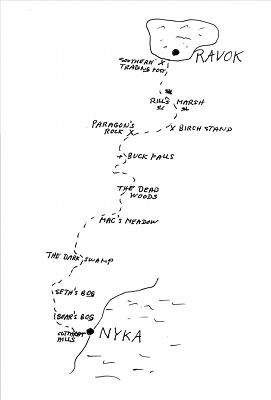 RAVOK
SOUTHERN X
TRADING POST
RILL'S MARSH
PARAGON'S
ROCK X
X BIRCH STAND
BUCK FALLS
THE DEAD
WOODS
MAC'S MEADOW
THE DARK SWAMP
SETH'S BOG
BEAR'S BOG
CUTTHROAT
HILLS
NYKA